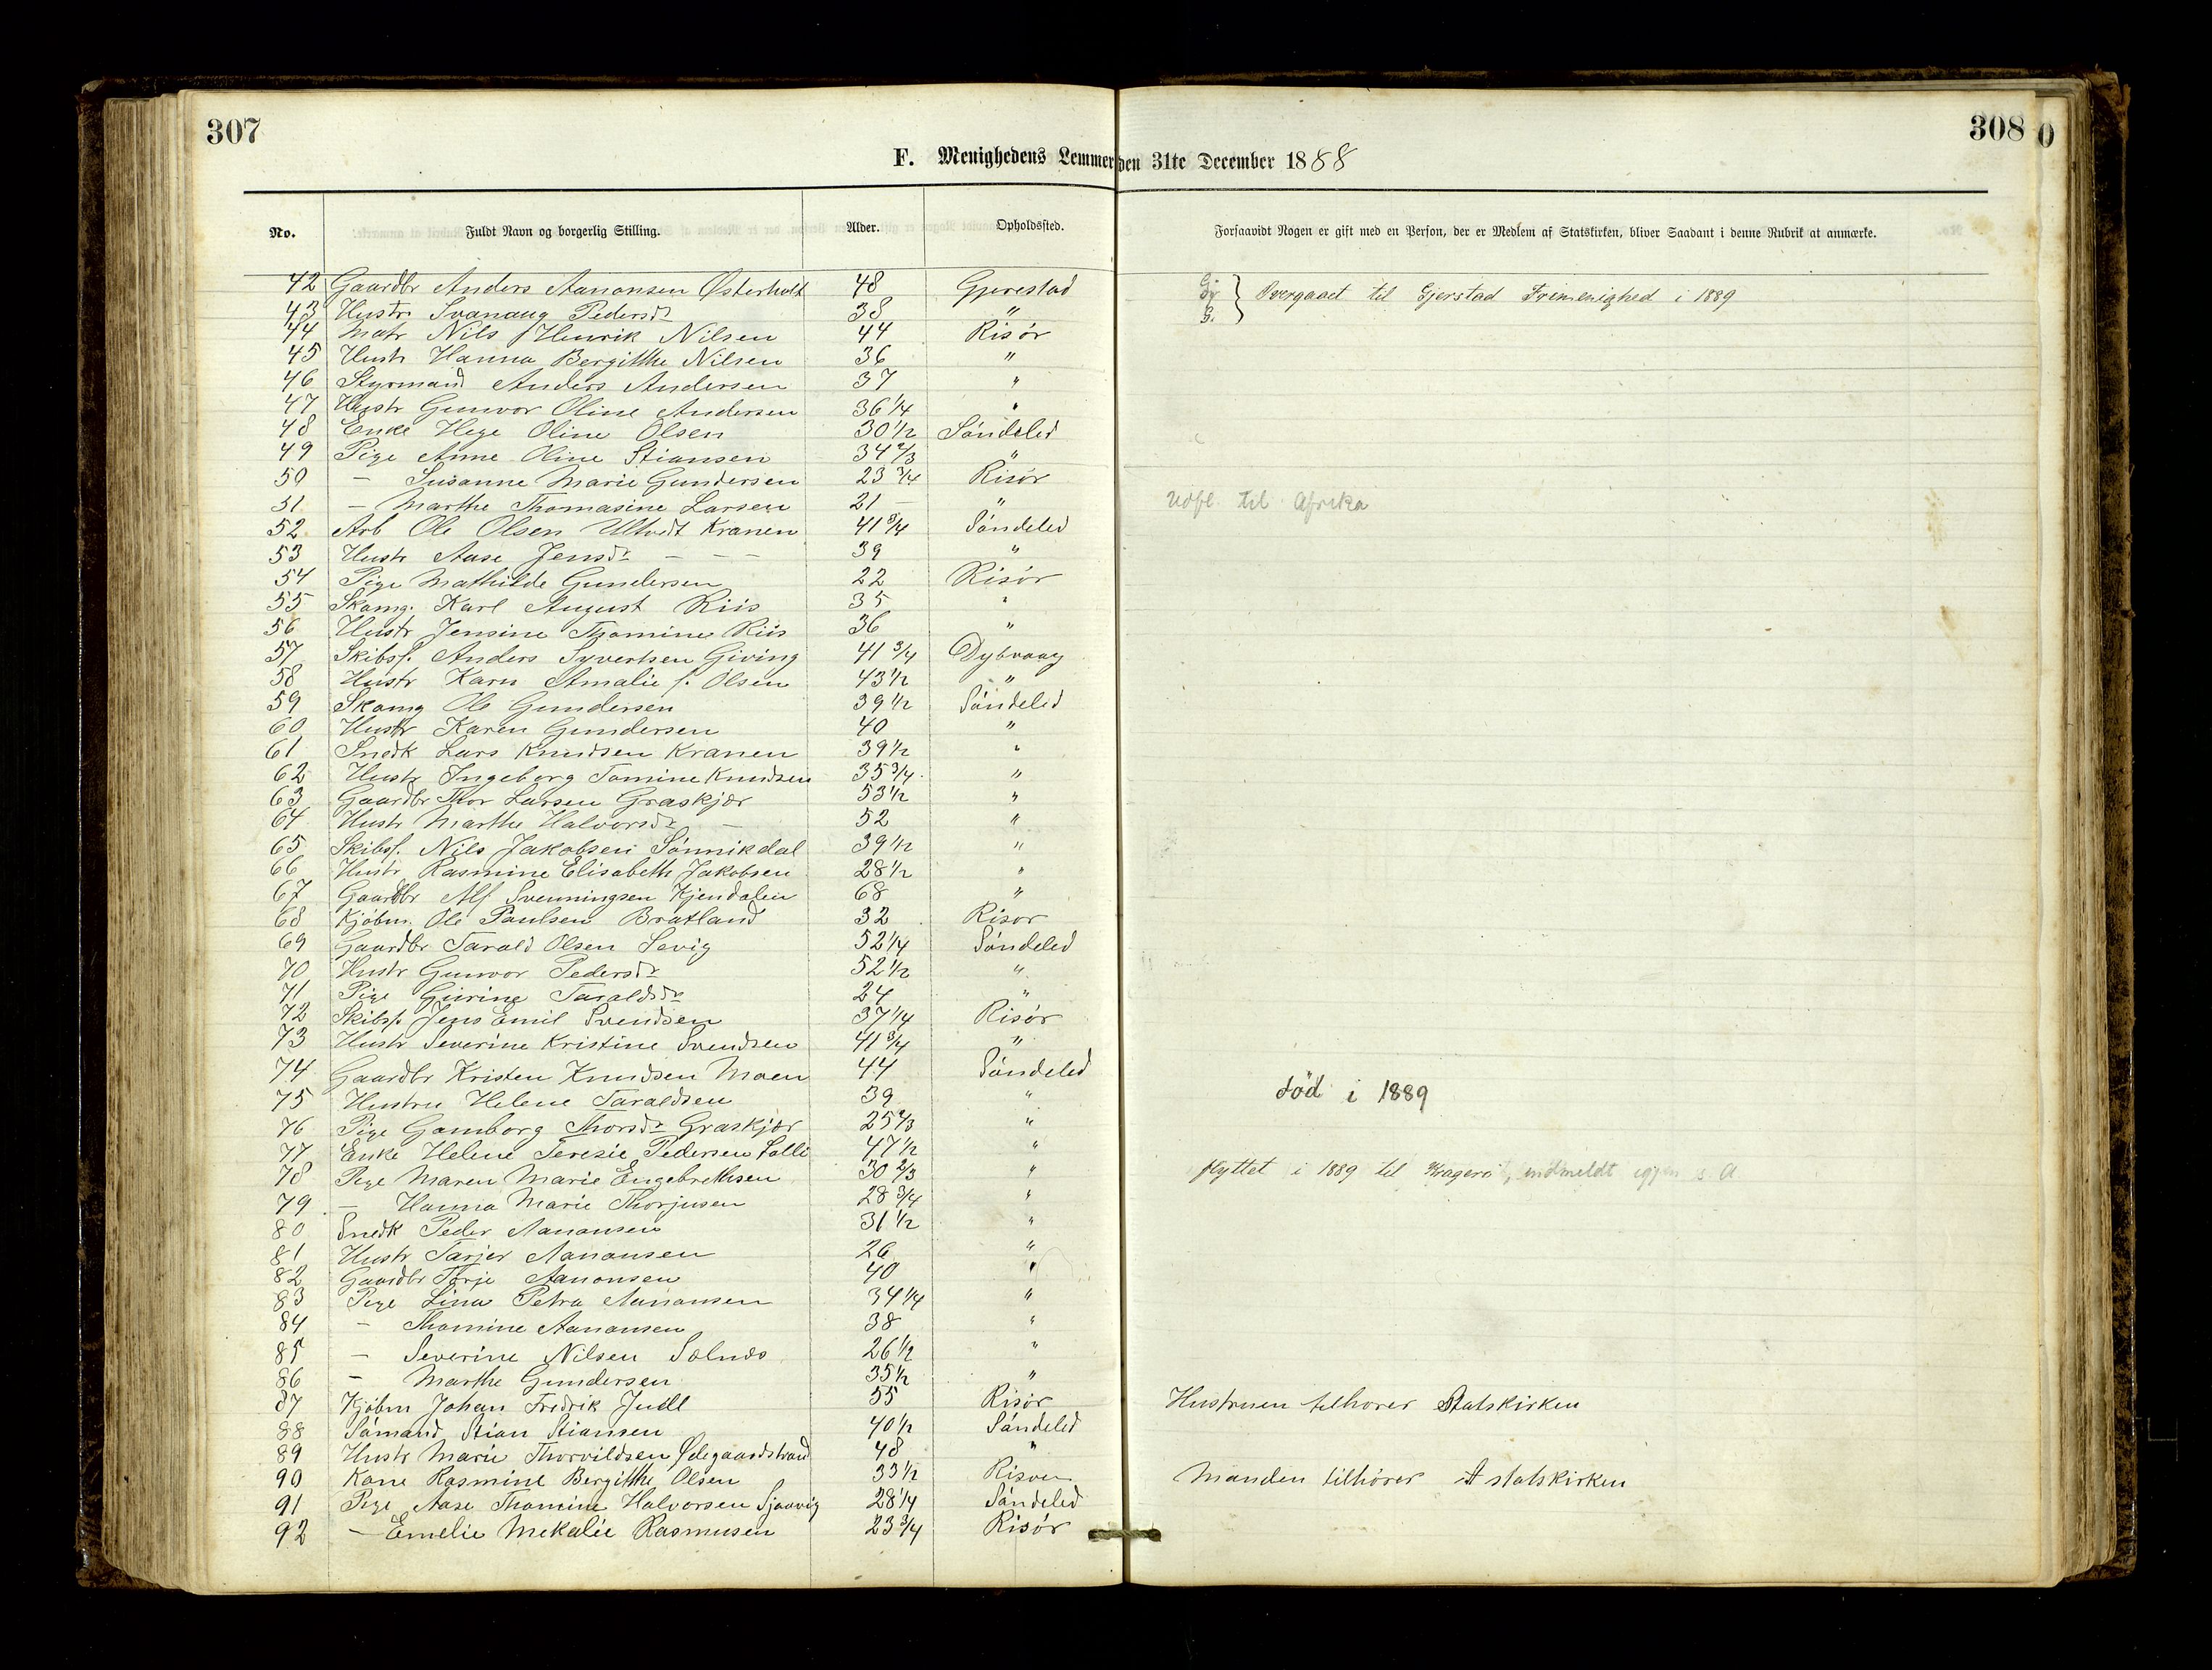 307
308
0
F. Menighedens Lemmer den 31te December 1888
No. Fuldt Navn og borgerlig Stilling. Alder. Opholdssted. Forsaavidt Nogen er gift med en Person, der er Medlem af Statskirken, bliver Saadant i denne Rubrik at anmærke.
42 Gaardbr Anders Aanonsen Østerholt 48 Gjerestad } Overgaaet til Gjerstad Frimenighed i 1889
43 Hustr Svanaug Pedersdr 38 "
44 Matr Nils Henrik Nilsen 44 Risör
45 Hustr Hanna Bergitthe Nilsen 36 "
46 Styrmand Anders Andersen 37 "
47 Hustr Gunvor Oline Andersen 36 1/4 "
48 Enke Hege Oline Olsen 30 1/2 Söndeled
49 Pige Anne Oline Stiansen 34 2/3 "
50 – Susanne Marie Gundersen 23 3/4 Risör
51 – Marthe Thomasine Larsen 21 – " Udfl. til Afrika
52 Arb Ole Olsen Ultvedt Kranen 41 3/4 Söndeled
53 Hustr Aase Jensdr – – – 39 "
54 Pige Mathilde Gundersen 22 Risör
55 Skomg. Karl August Riis 35 "
56 Hustr Jensine Thomine Riis 36 "
57 Skibsf. Anders Syvertsen Giving 41 3/4 Dybvaag
58 Hustr Karen Amalie f. Olsen 43 1/2 "
59 Skomg Ole Gundersen 39 1/2 Söndeled
60 Hustr Karen Gundersen 40 "
61 Snedk Lars Knudsen Kranen 39 1/2 "
62 Hustr Ingeborg Tomine Knudsen 35 3/4 "
63 Gaardbr Thor Larsen Graskjær 53 1/2 "
64 Hustr Marthe Halvorsdr – 52 "
65 Skibsf. Nils Jakobsen Sönnikdal 39 1/2 "
66 Hustr Rasmine Elisabeth Jakobsen 28 1/2 "
67 Gaardbr Alf Svenningsen Kjendalen 68 "
68 Kjöbm. Ole Paulsen Bratland 32 Risor
69 Gaardbr Tarald Olsen Sevig 52 1/4 Söndeled
70 Hustr Gunvor Pedersdr 52 1/2 "
71 Pige Gurine Taraldsdr 24 "
72 Skibsf. Jens Emil Svendsen 37 1/4 Risör
73 Hustr Severine Kristine Svendsen 41 3/4 "
74 Gaardbr Kristen Knudsen Moen 44 Söndeled
75 Hustru Helene Taraldsen 39 " död i 1889
76 Pige Gomborg Thorsdr Graskjær 25 2/3 "
77 Enke Helene Teresie Pedersen 47 1/2 "
78 Pige Maren Marie Engebrethsen 30 2/3 " flyttet i 1889 til Kragerö, indmeldt igjen s. A
79 – Hanna Marie Thorjusen 28 3/4 "
80 Snedk Peder Aanonsen 31 1/2 "
81 Hustr Tarjer Aanonsen 26 "
82 Gaardbr Terje Aanonsen 40 "
83 Pige Lina Petra Aanonsen 34 1/4 "
84 – Thomine Aanonsen 38 "
85 – Severine Nilsen Solnæs 26 1/2 "
86 – Marthe Gundersen 35 1/2 "
87 Kjöbm Johan Fredrik Juell 55 Risör Hustruen tilhorer Statskirken
88 Sömand Stian Stiansen 40 1/2 Söndeled
89 Hustr Marie Thorvildsen Ødegaardstrand 48 "
90 Kone Rasmine Bergitthe Olsen 33 1/2 Risoer Manden tilhörer statskirken
91 Pige Aase Thomine Halvorsen Sjaavig 28 1/4 Söndeled
92 – Emelie Mekalie Rasmusen 23 3/4 Risör